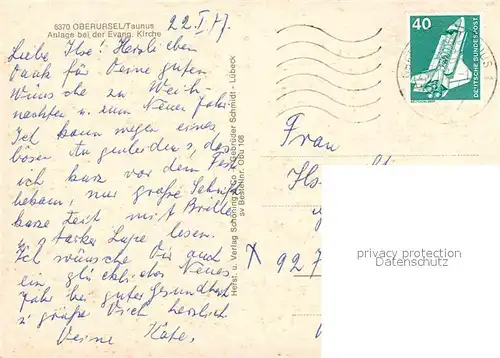 6370 OBERURSEL/Taunus
Anlage bei der Evang. Kirche
22.I.77.
Liebe Ilse! Herzlieben
Dank für Deine guten
Wünsche zu Weih-
nachten u. zum Neuen Jahr.
Ich kann wegen eines
bösen Augenleidens, das
ich kurz vor dem Fest
bekam, nur große Schrift
kurze Zeit mit Brille
u. starker Lupe lesen.
Ich wünsche Dir auch
ein glückliches Neues
Jahr bei guter Gesundheit
u. grüße Dich herzlich
Deine Käte.
Herst. u. Verlag Schöning & Co + Gebrüder Schmidt - Lübeck
sv Bestellnr. Obu 108
40
DEUTSCHE BUNDESPOST
Frau
927
privacy protection
Datenschutz